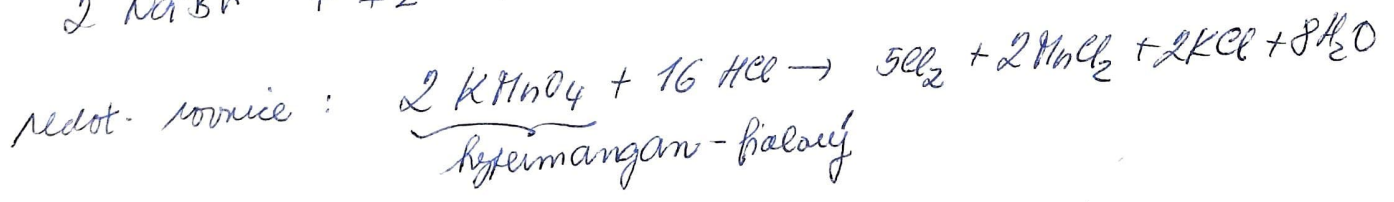 2 NaBr
redot. rovnice : 2 KMnO₄ + 16 HCl → 5Cl₂ + 2MnCl₂ + 2KCl + 8H₂O
hypermangan - fialový